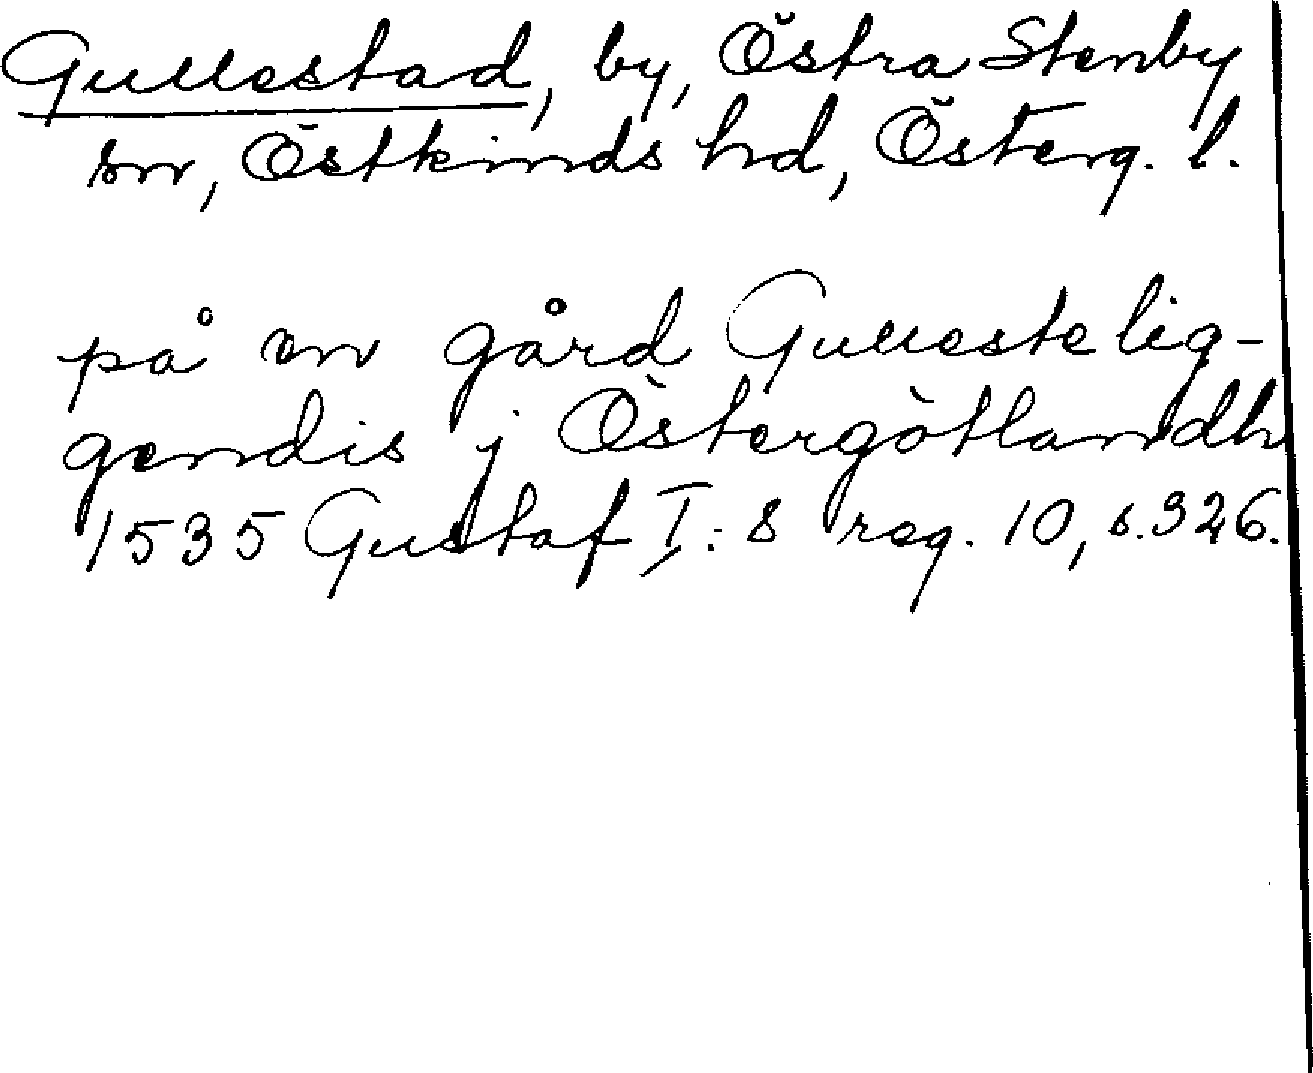 Gullestad, by, Östra Stenby
sn, Östkinds hd, Österg. l.
på en gård Gulleste lig-
gendis j Östergötlandh
1535 Gustaf I:s reg. 10, s. 326.